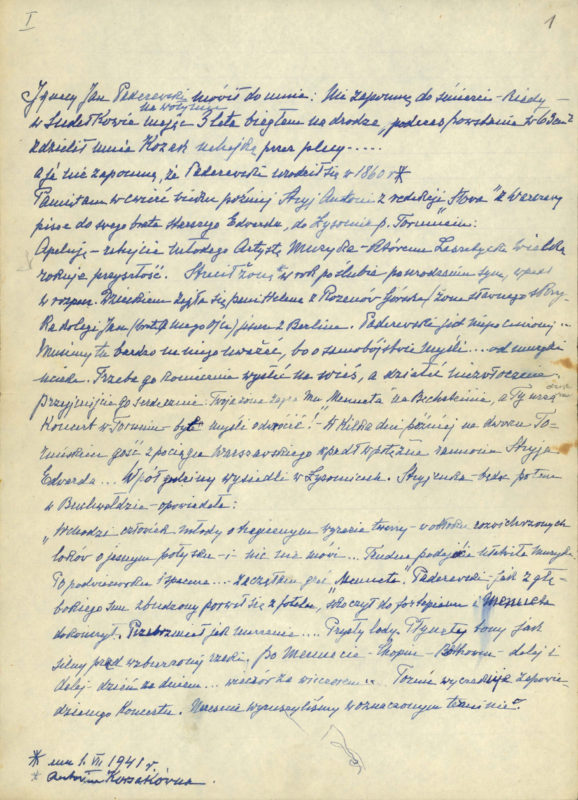 I
1
Ignacy Jan Paderewski mówił do mnie: Nie zapomnę do śmierci - kiedy -
na Wołyniu
w Sudołkowie mając 3 lata biegłem na drodze, podczas powstania w 63cim r
zdzielił mnie Kozak nahajką przez plecy.....
a ja nie zapomnę, że Paderewski urodził się w 1860 r*
Pamiętam w ćwierć wieku później Stryj Antoni z redakcji "Słowa" z Warszawy
pisze do swego brata starszego Edwarda, do Łysomic p. Toruniem:
Apeluję - ratujcie młodego Artystę Muzyka - któremu Leszetycki wielką
rokuje przyszłość. Stracił żonę* w rok po ślubie po urodzeniu syna, wpadł
w rozpacz. Dzieckiem zajęła się pani Helena z Rozenów Górska (żona sławnego skrzyp-
ka
Jan (brat mego Ojca) pisze z Berlina. Paderewski jest niepocieszony..
Musimy tu bardzo na niego uważać, bo o samobójstwie myśli.... od muzyki
ucieka. Trzeba go koniecznie wysłać na wieś, a działać niezwłocznie.
Przyjmijcie go serdecznie. Twoja żona zagra Mu "Menueta" na Bechsteinie, a Ty urządź
Koncert w Toruniu - by myśli odwrócić! - A kilka dni później na dworcu To-
ruńskim gość z pociągu Warszawskiego wpadł w potężne ramiona Stryja
Edwarda... W pół godziny wysiedli w Łysomicach. Stryjenka - będąc potem
w Buchwałdzie - opowiadała:
"Wchodzi człowiek młody o tragicznym wyrazie twarzy - w obłoku rozwichrzonych
loków o jasnym połysku - i nic nie mówi... Trudne podejście
Po podwieczorku i spacerze.... zaczęłam grać "Menueta". Paderewski - jak z głę-
bokiego snu zbudzony porwał się z fotela, skoczył do fortepianu i Menueta
dokończył. Przebrzmiał jak marzenie.... Prysły lody. Płynęły tony jak
silny prąd wzburzonej rzeki. Po Menuecie - Chopin - Bethoven - dalej i
dalej - dzień za dniem... wieczór za wieczorem.. Toruń wyczekuje zapowie-
dzianego Koncertu. Nareszcie wyruszyliśmy w oznaczonym terminie".
* um 1. VII 1941 r.
* Antonina Korsakówna.